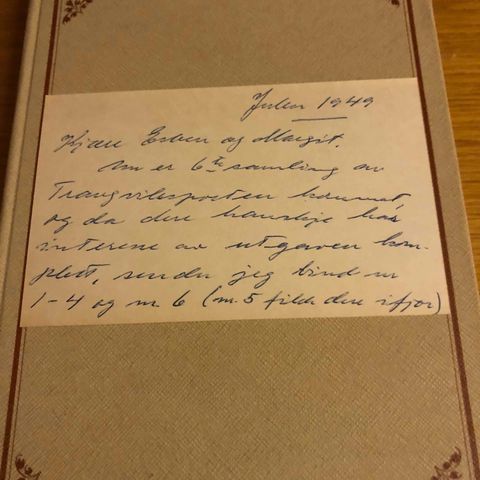 Julen 1949
Kjære Esben og Margit.
Nu er 6te samling av
Tranqvilsposten kommet,
og da dere kanskje har
interesse av utgaven kom-
plett, sender jeg bind nr
1-4 og nr. 6 (nr. 5 fikk dere ifjor)